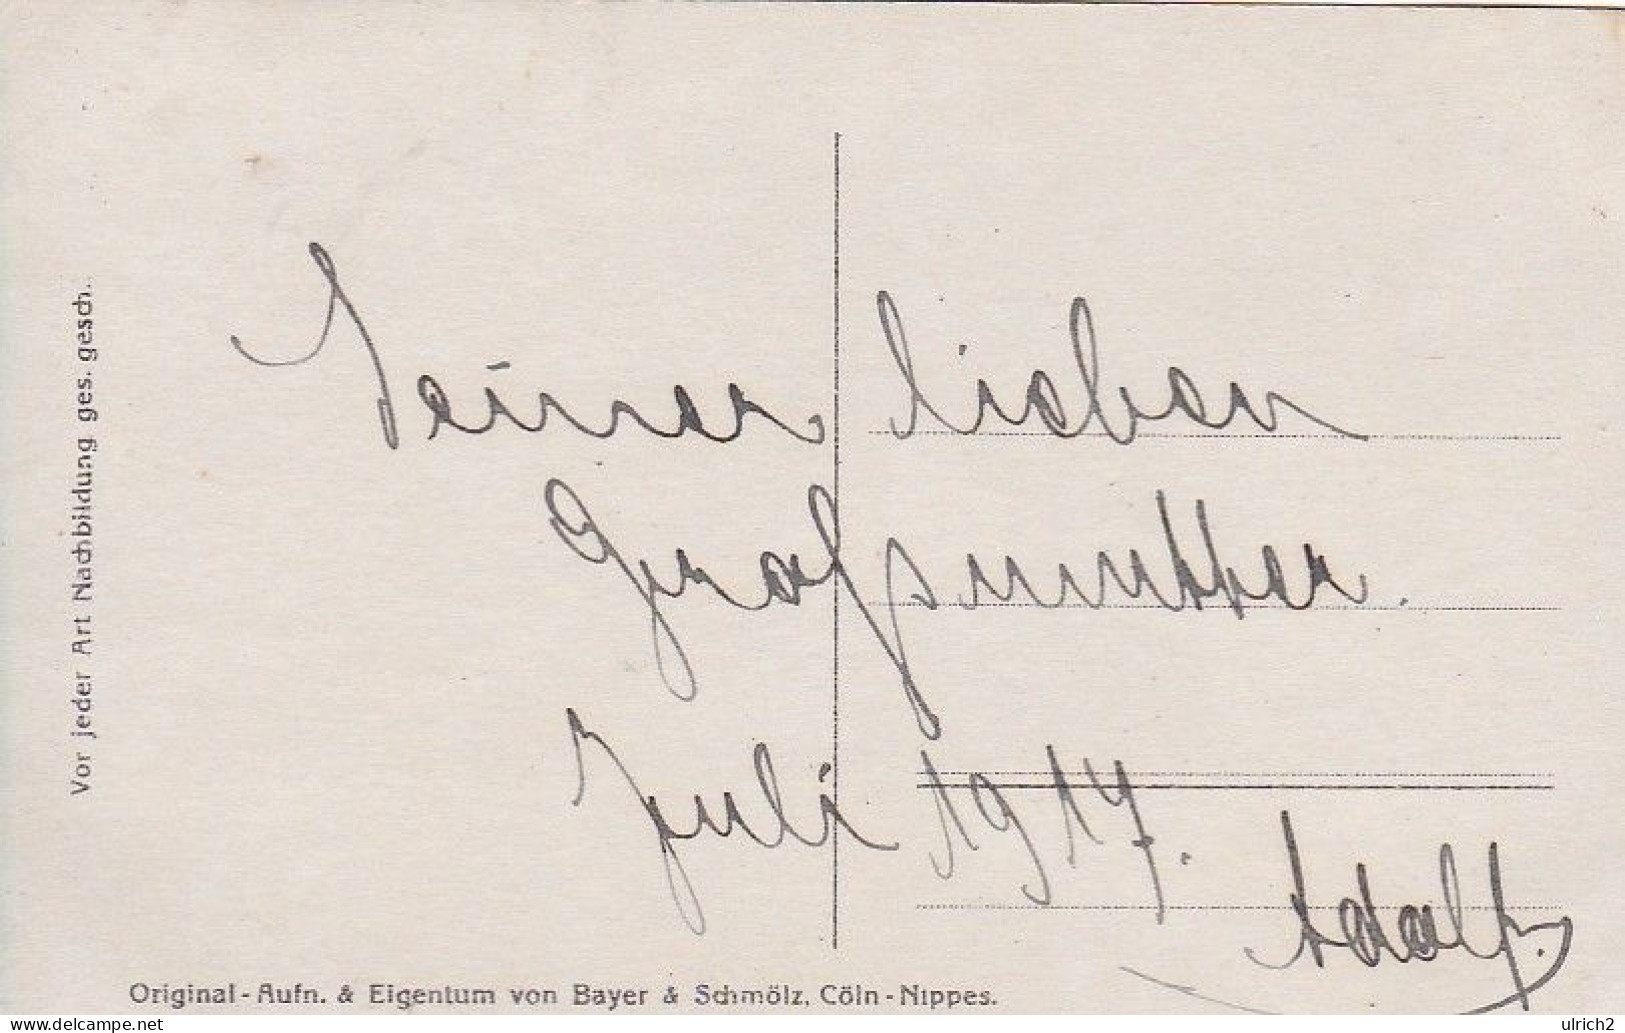 Vor jeder Art Nachbildung ges. gesch.
Seiner lieben
Großmutter.
Juli 1917.
Adolf.
Original-Aufn. & Eigentum von Bayer & Schmölz, Cöln-Nippes.
delcampe.net
ulrich2